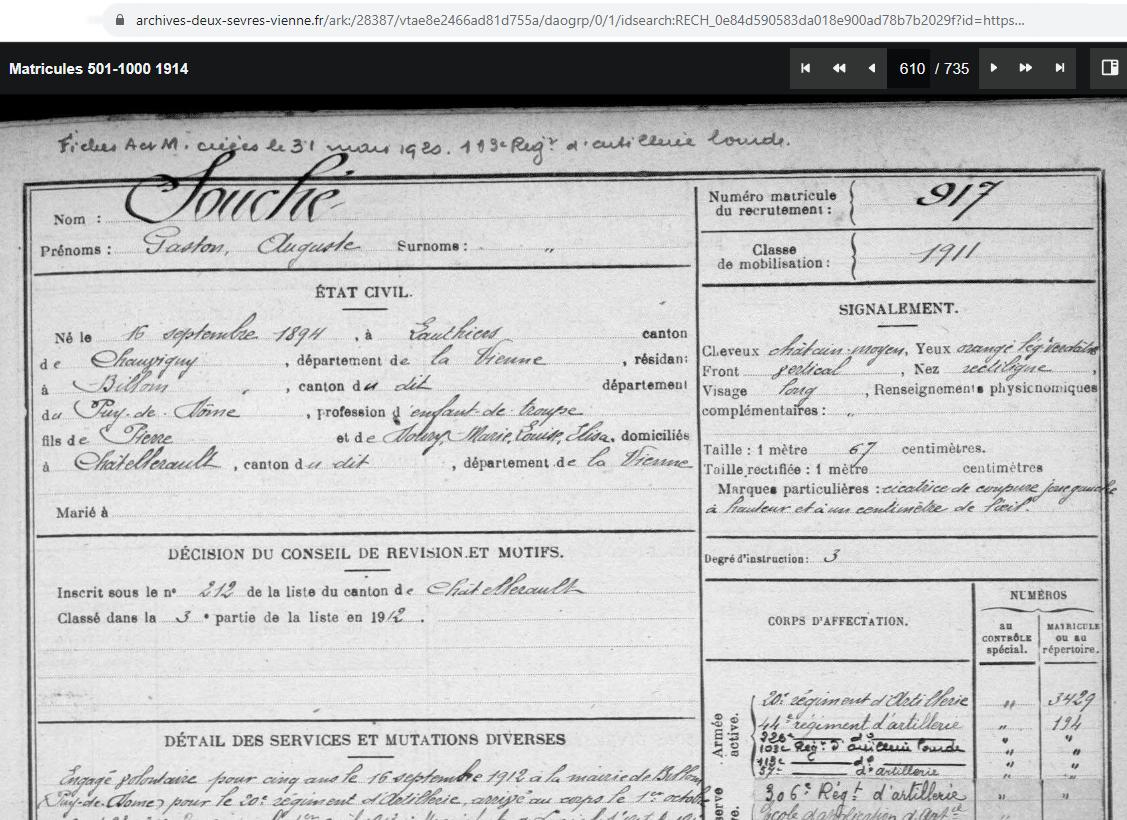 archives-deux-sevres-vienne.fr/ark:/28387/vtae8e2466ad81d755a/daogrp/0/1/idsearch:RECH_0e84d590583da018e900ad78b7b2029f?id=https...
Matricules 501-1000 1914
610 / 735
Fiches A et M. créées le 31 mars 1920. 113e Régt d'artillerie lourde.
Nom : Souché
Prénoms : Gaston, Auguste Surnoms : "
Numéro matricule du recrutement : 917
Classe de mobilisation : 1911
ÉTAT CIVIL.
Né le 16 septembre 1894, à Lauthiers canton
de Chauvigny, département de la Vienne, résidant
à Billom, canton du dit département
du Puy-de-Dôme, profession d'enfant de troupe
fils de Pierre et de Marie, Louise, Elisa, domiciliés
à Châtellerault, canton du dit, département de la Vienne
Marié à
SIGNALEMENT.
Cheveux châtain moyen, Yeux orangé lég. verdâtre
Front vertical, Nez rectiligne,
Visage long, Renseignements physionomiques
complémentaires : "
Taille : 1 mètre 67 centimètres.
Taille rectifiée : 1 mètre centimètres
Marques particulières : cicatrice de coupure joue gauche
à hauteur et à un centimètre de l'œil.
Degré d'instruction : 3
DÉCISION DU CONSEIL DE REVISION ET MOTIFS.
Inscrit sous le n° 212 de la liste du canton de Châtellerault
Classé dans la 3e partie de la liste en 1912.
CORPS D'AFFECTATION.
NUMÉROS
au CONTRÔLE spécial.
MATRICULE ou au répertoire.
Armée active.
20e régiment d'Artillerie " 3429
44e régiment d'artillerie " 194
226e do " "
103e Régt d'artillerie lourde " "
113e do " "
57e d'artillerie " "
306e Régt d'artillerie " "
École d'application d'Art
DÉTAIL DES SERVICES ET MUTATIONS DIVERSES
Engagé volontaire pour cinq ans le 16 septembre 1912 à la mairie de Billom
(Puy-de-Dôme) pour le 20e régiment d'Artillerie, arrivé au corps le 1er octob